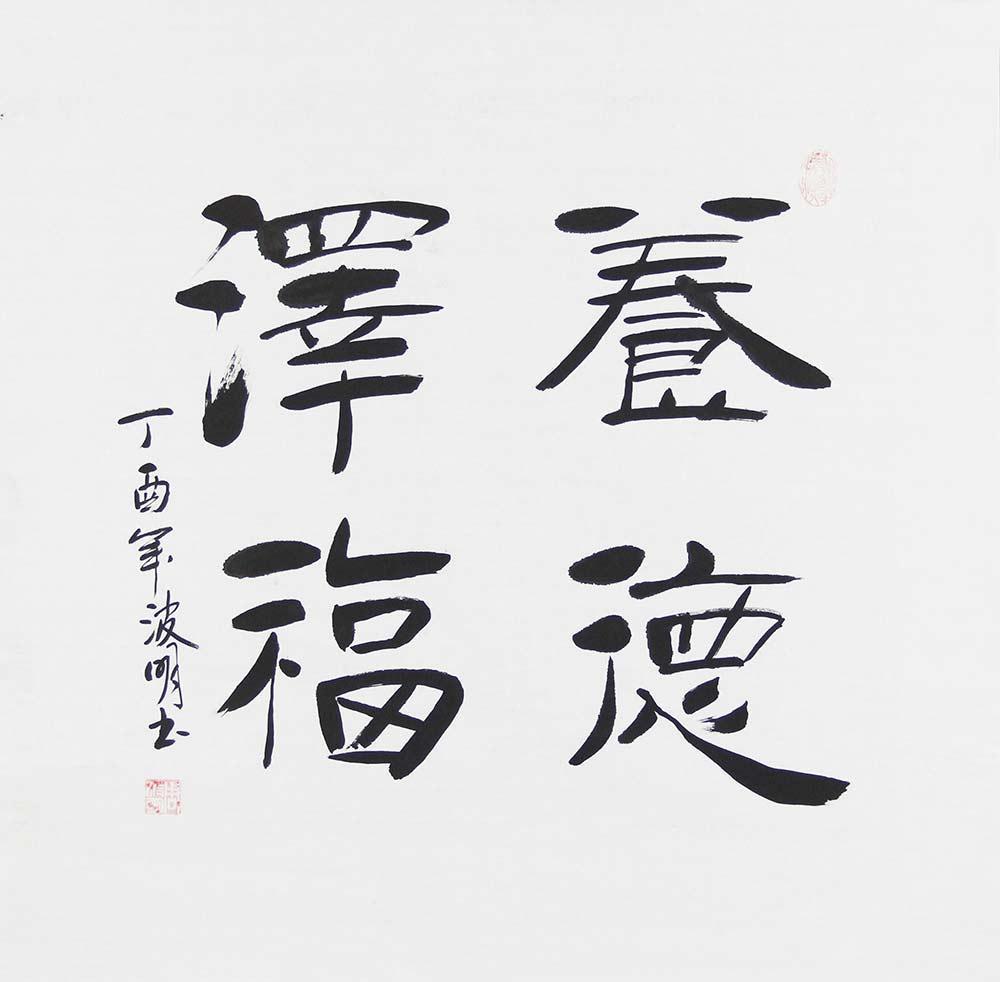 養德
澤福
丁酉年波明书